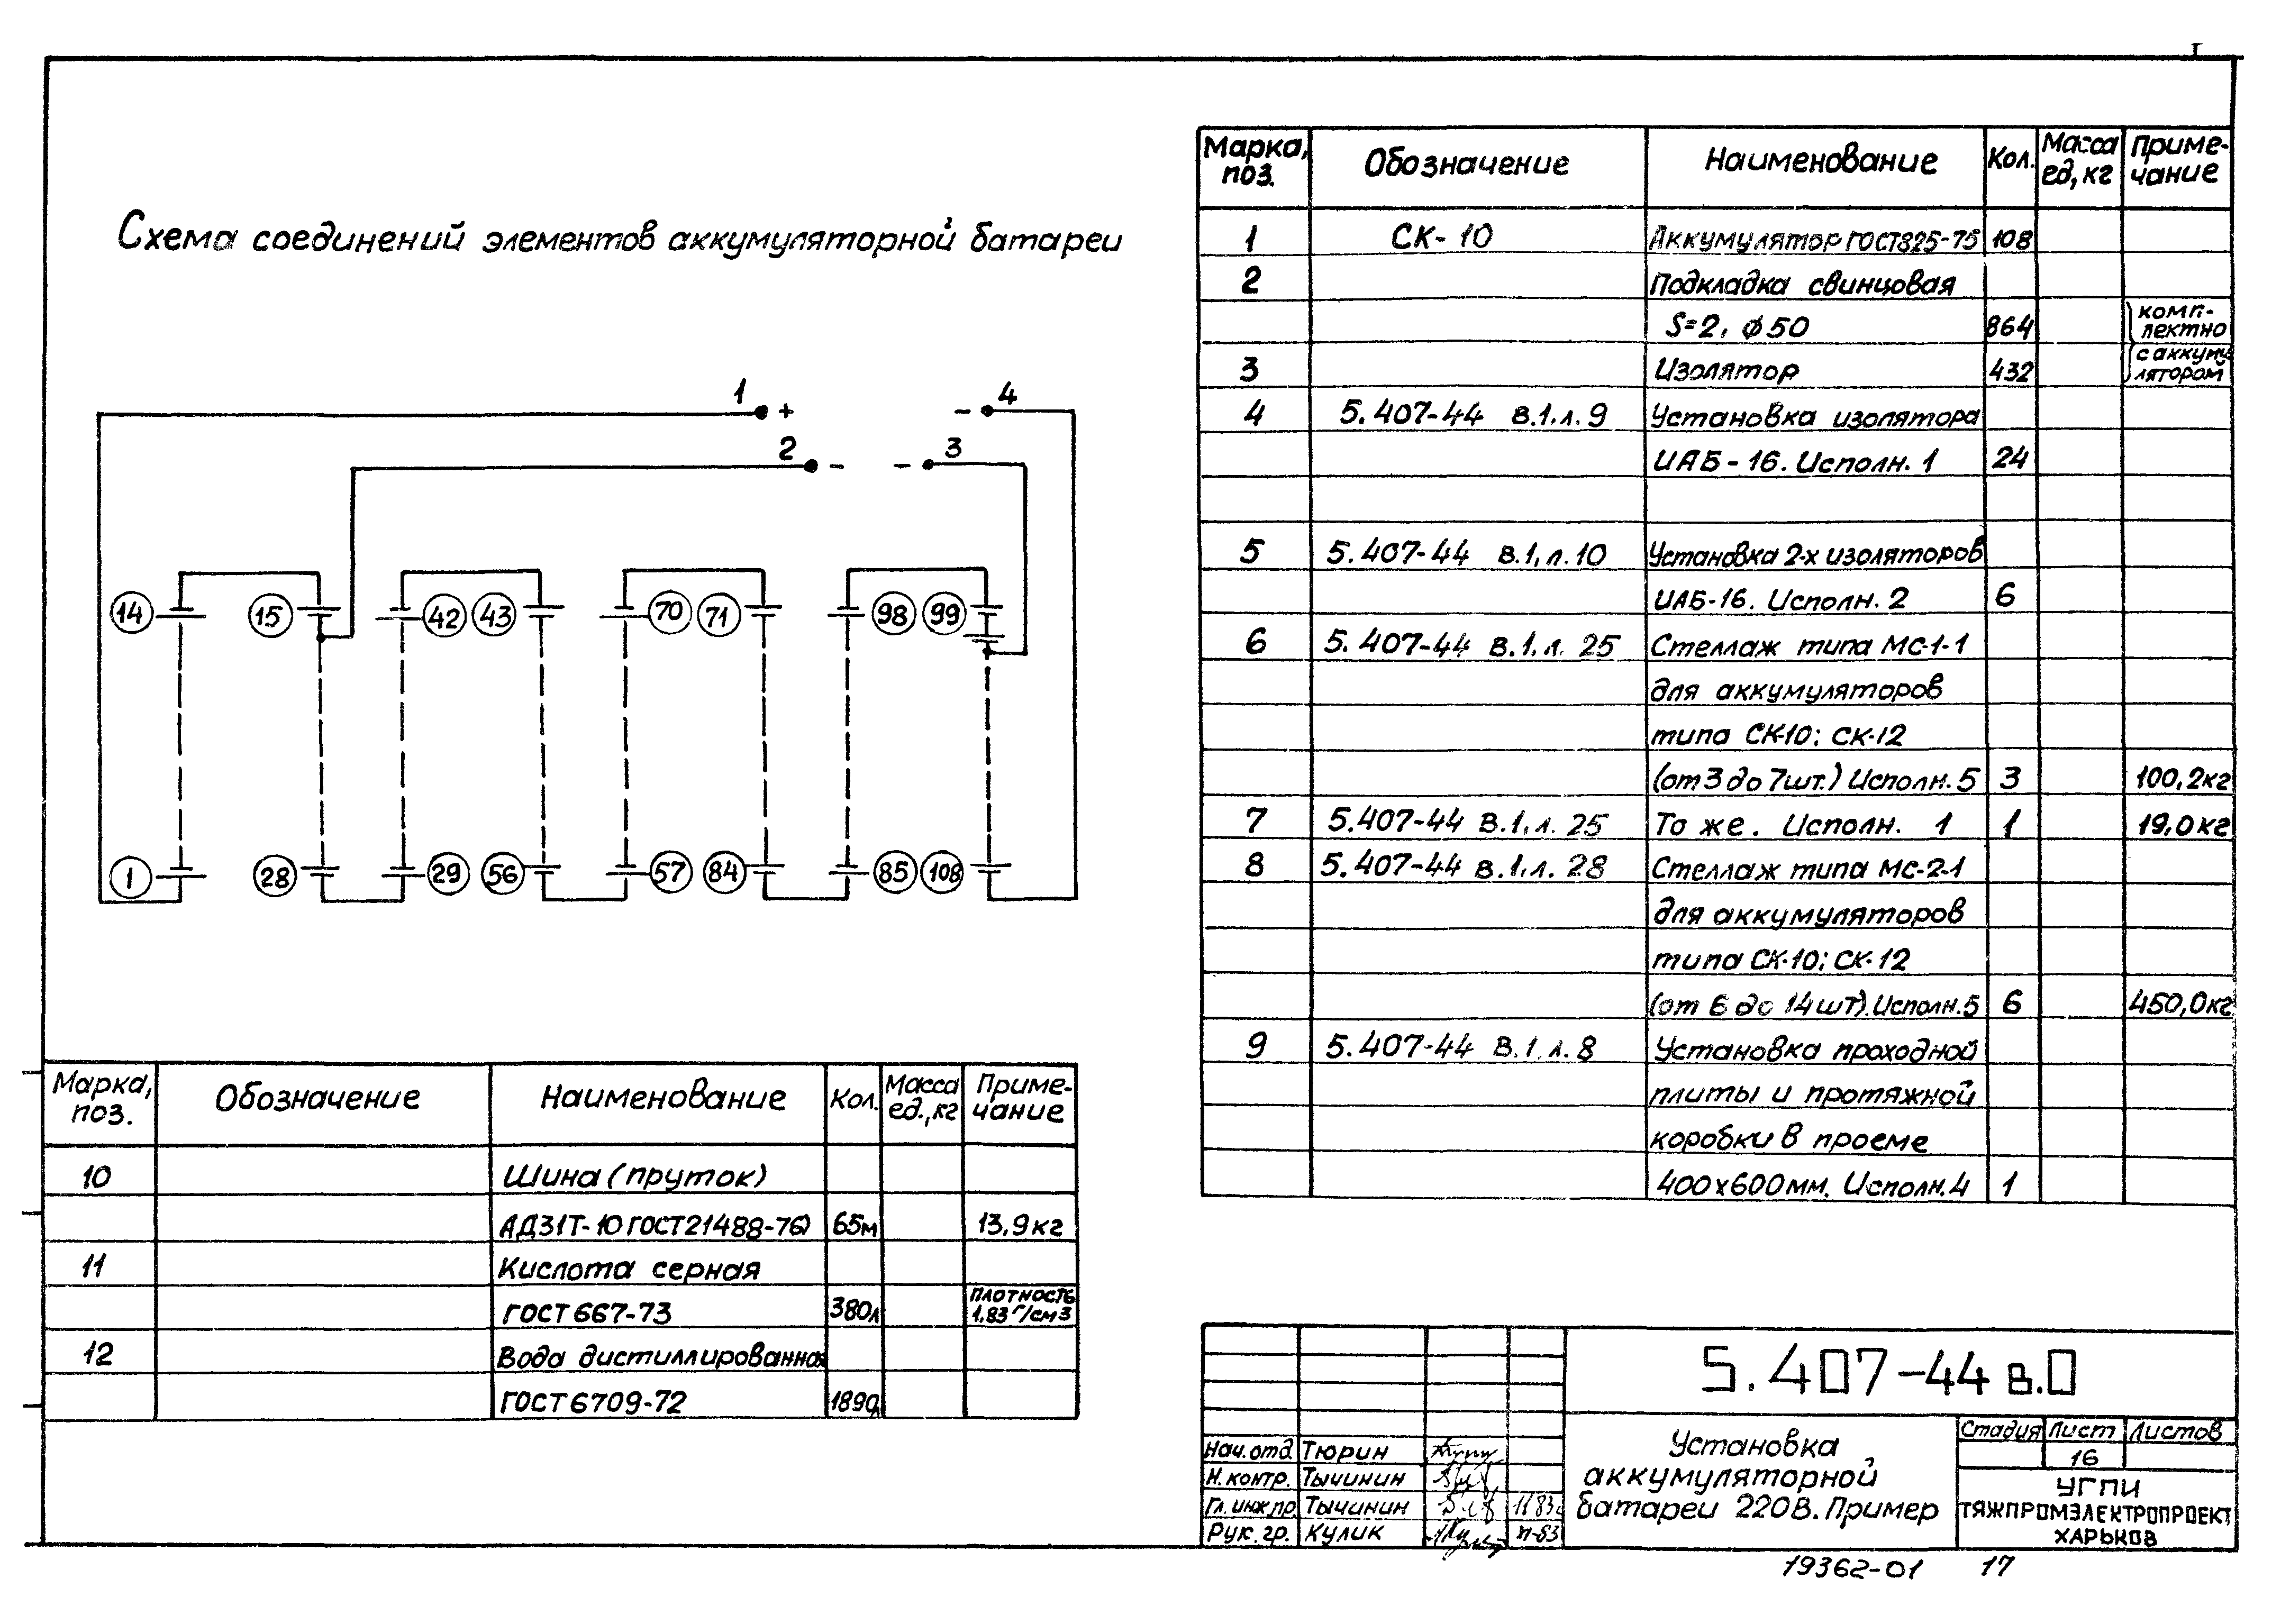 Схема соединений элементов аккумуляторной батареи
1 + - 4
2 - - 3
14 15 42 43 70 71 98 99
1 28 29 56 57 84 85 108
Марка, поз. Обозначение Наименование Кол. Масса ед,кг Приме-чание
1 СК-10 Аккумулятор ГОСТ825-75 108
2 Подкладка свинцовая
S=2, ϕ50 864 комп-лектно
3 Изолятор 432 с аккуму лятором
4 5.407-44 в.1,л.9 Установка изолятора
ИАБ-16. Исполн. 1 24
5 5.407-44 в.1,л.10 Установка 2-х изоляторов
ИАБ-16. Исполн. 2 6
6 5.407-44 в.1,л. 25 Стеллаж типа МС-1-1
для аккумуляторов
типа СК-10; СК-12
(от 3 до 7шт.) Исполн.5 3 100,2кг
7 5.407-44 в.1,л. 25 То же. Исполн. 1 1 19,0кг
8 5.407-44 в.1,л. 28 Стеллаж типа МС-2-1
для аккумуляторов
типа СК-10; СК-12
(от 6 до 14шт). Исполн.5 6 450,0кг
9 5.407-44 в.1.л.8 Установка проходной
плиты и протяжной
коробки в проеме
400х600мм. Исполн.4 1
Марка, поз. Обозначение Наименование Кол. Масса ед.,кг Приме-чание
10 Шина (пруток)
АД31Т-10 ГОСТ21488-76) 65м 13,9кг
11 Кислота серная
ГОСТ 667-73 380л плотность 1,83 г/см3
12 Вода дистиллированная
ГОСТ 6709-72 1890л
5.407-44 в.0
Установка
аккумуляторной
батареи 220В. Пример
Стадия Лист Листов
16
УГПИ
ТЯЖПРОМЭЛЕКТРОПРОЕКТ
ХАРЬКОВ
Нач.отд. Тюрин
Н.контр. Тычинин
Гл.инж.пр. Тычинин 11 83
Рук.гр. Кулик 11-83
19362-01 17